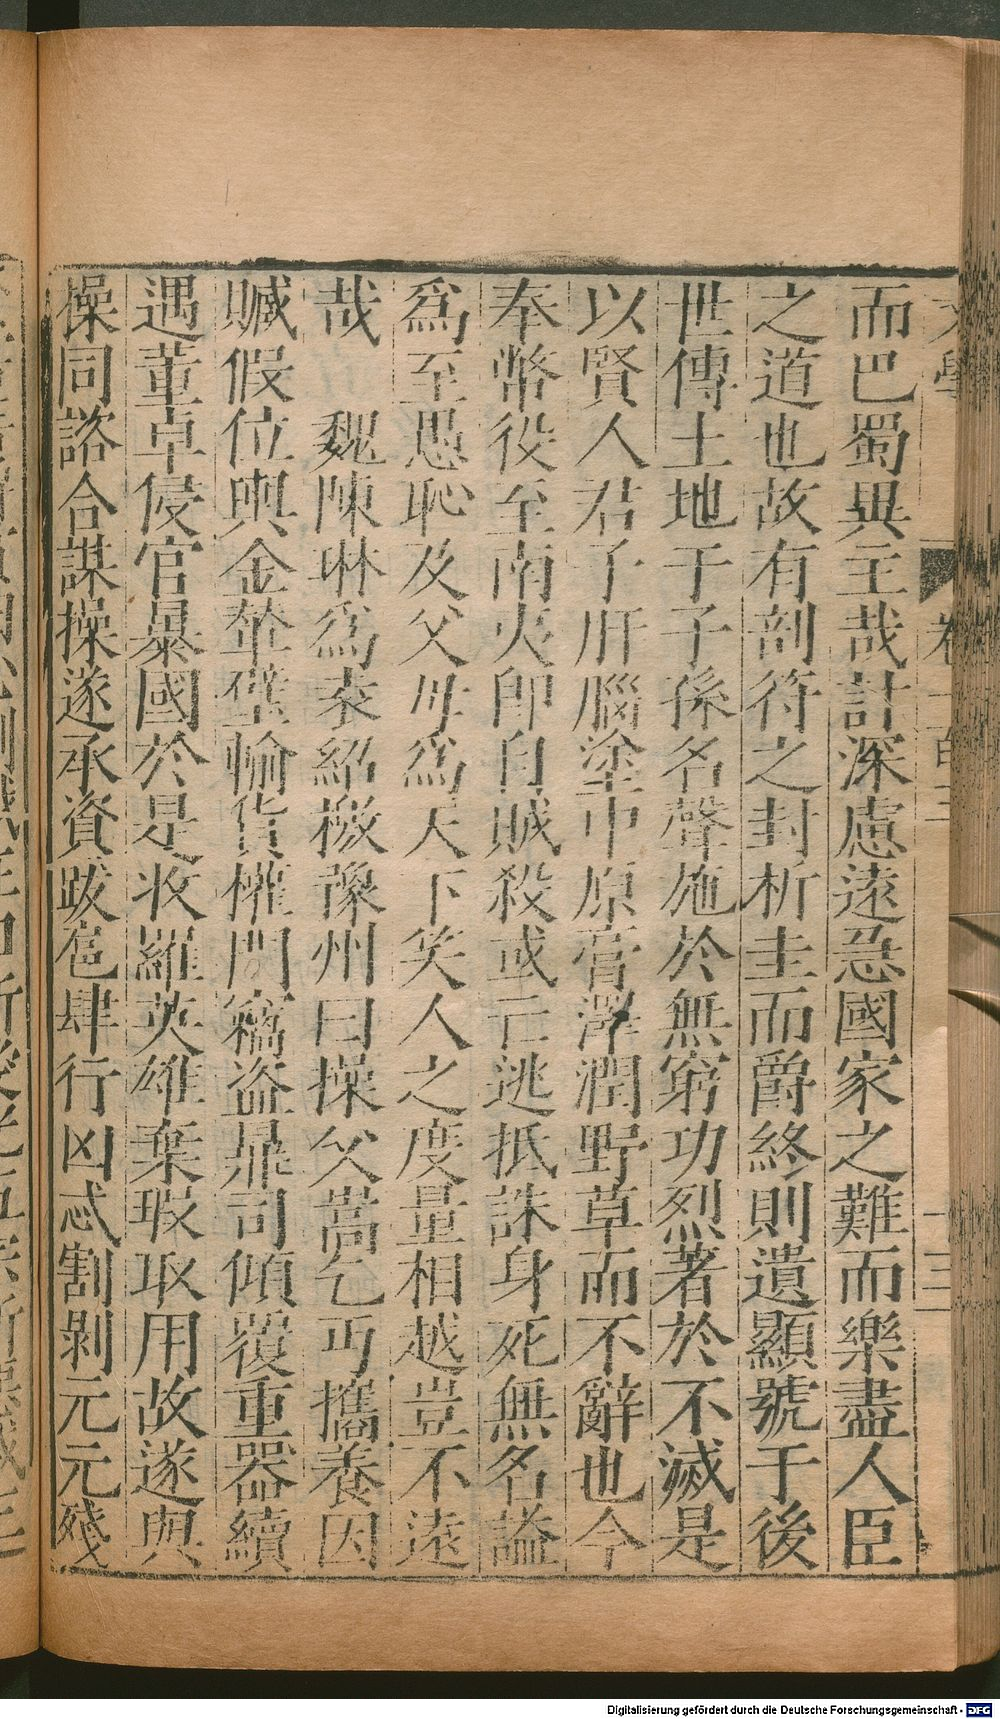 而巴蜀異主哉計深慮遠急國家之難而樂盡人臣
之道也故有剖符之封析圭而爵終則遺顯號于後
世傳土地于子孫名聲施於無窮功烈著於不滅是
以賢人君子肝腦塗中原膏澤潤野草而不辭也今
奉幣役至南夷即自賊殺或亡逃抵誅身死無名謚
爲至愚恥及父母爲天下笑人之度量相越豈不遠
哉　魏陳琳爲袁紹檄豫州曰操父嵩乞丐攜養因
贓假位輿金輦璧輸貨權門竊盜鼎司傾覆重器續
遇董卓侵官暴國於是收羅英雄棄瑕取用故遂與
操同諮合謀操遂承資跋扈肆行凶忒割剝元元殘
Digitalisierung gefördert durch die Deutsche Forschungsgemeinschaft - DFG